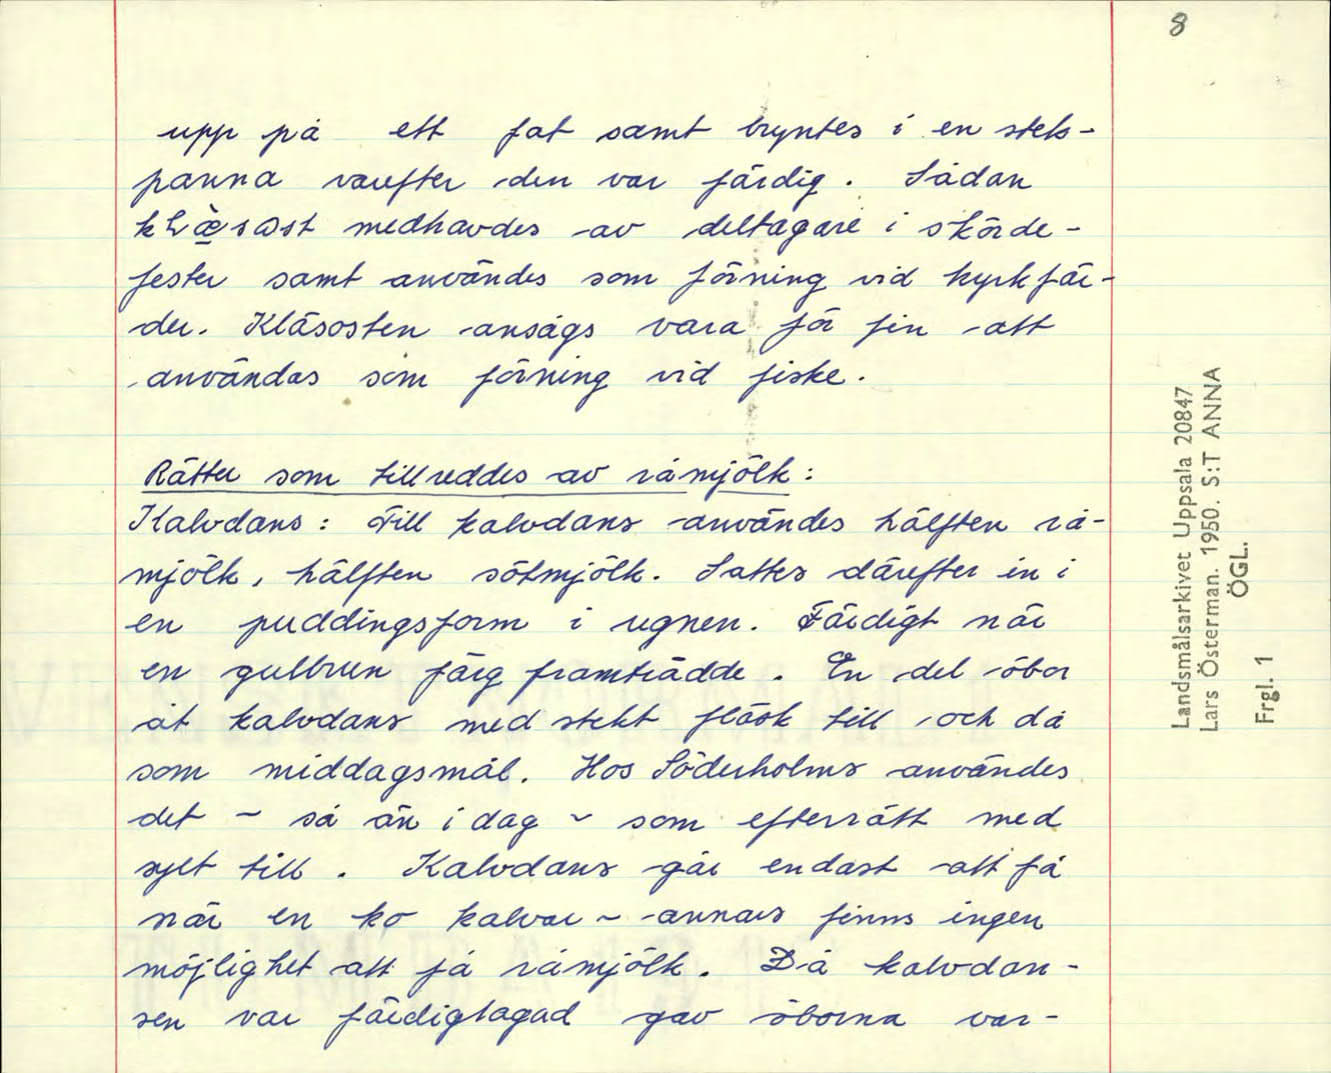 8
upp på ett fat samt bryntes i en stek-
panna varefter den var färdig. Sådan
medhavdes av deltagare i skörde-
fester samt användes som förning vid kyrkfär-
der. Kläsosten ansågs vara för fin att
användas som förning vid fiske.
Rätter som tillreddes av råmjölk:
Kalvdans: Till kalvdans användes hälften rå-
mjölk, hälften sötmjölk. Sattes därefter in i
en puddingsform i ugnen. Färdigt när
en gulbrun färg framträdde. En del öbor
åt kalvdans med stekt fläsk till och då
som middagsmål. Hos Söderholms användes
det - så än i dag - som efterrätt med
sylt till. Kalvdans går endast att få
när en ko kalvar - annars finns ingen
möjlighet att få råmjölk. Då kalvdan-
sen var färdiglagad gav öborna var-
Landsmålsarkivet Uppsala 20847
Lars Österman. 1950. S:T ANNA
ÖGL.
Frgl. 1